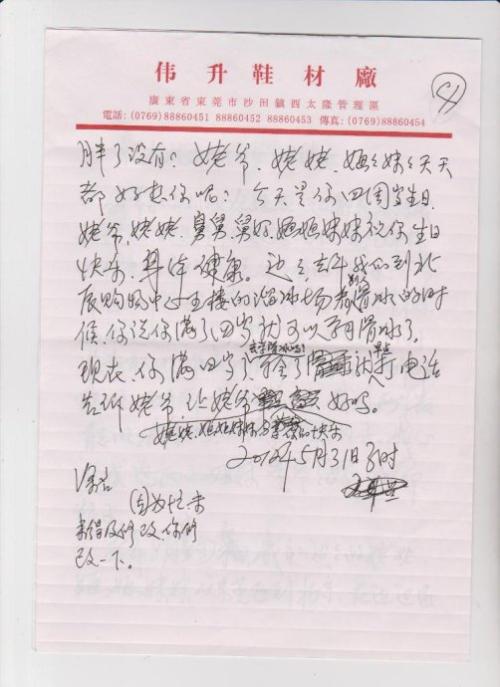 伟升鞋材廠
廣東省東莞市沙田鎮西太隆管理區
電話: (0769) 88860451 88860452 88860453 傳真: (0769) 88860454
胖了没有? 姥爷、姥姥、妈妈妹妹天天
都好想你呢! 今天是你四周岁生日.
姥爷、姥姥、舅舅、舅妈、妈妈妹妹祝你生日
快乐、身体健康。 去年我们到北
辰购物中心五楼的溜冰场看别人滑冰的时
候,你说你满了四岁就可以学习滑冰了,
现在你满四岁了 打电话
告诉姥爷,让姥爷 好吗。
姥姥、妈妈妹妹 快乐
2012年5月31日
因
未得及修改,你们
改一下。